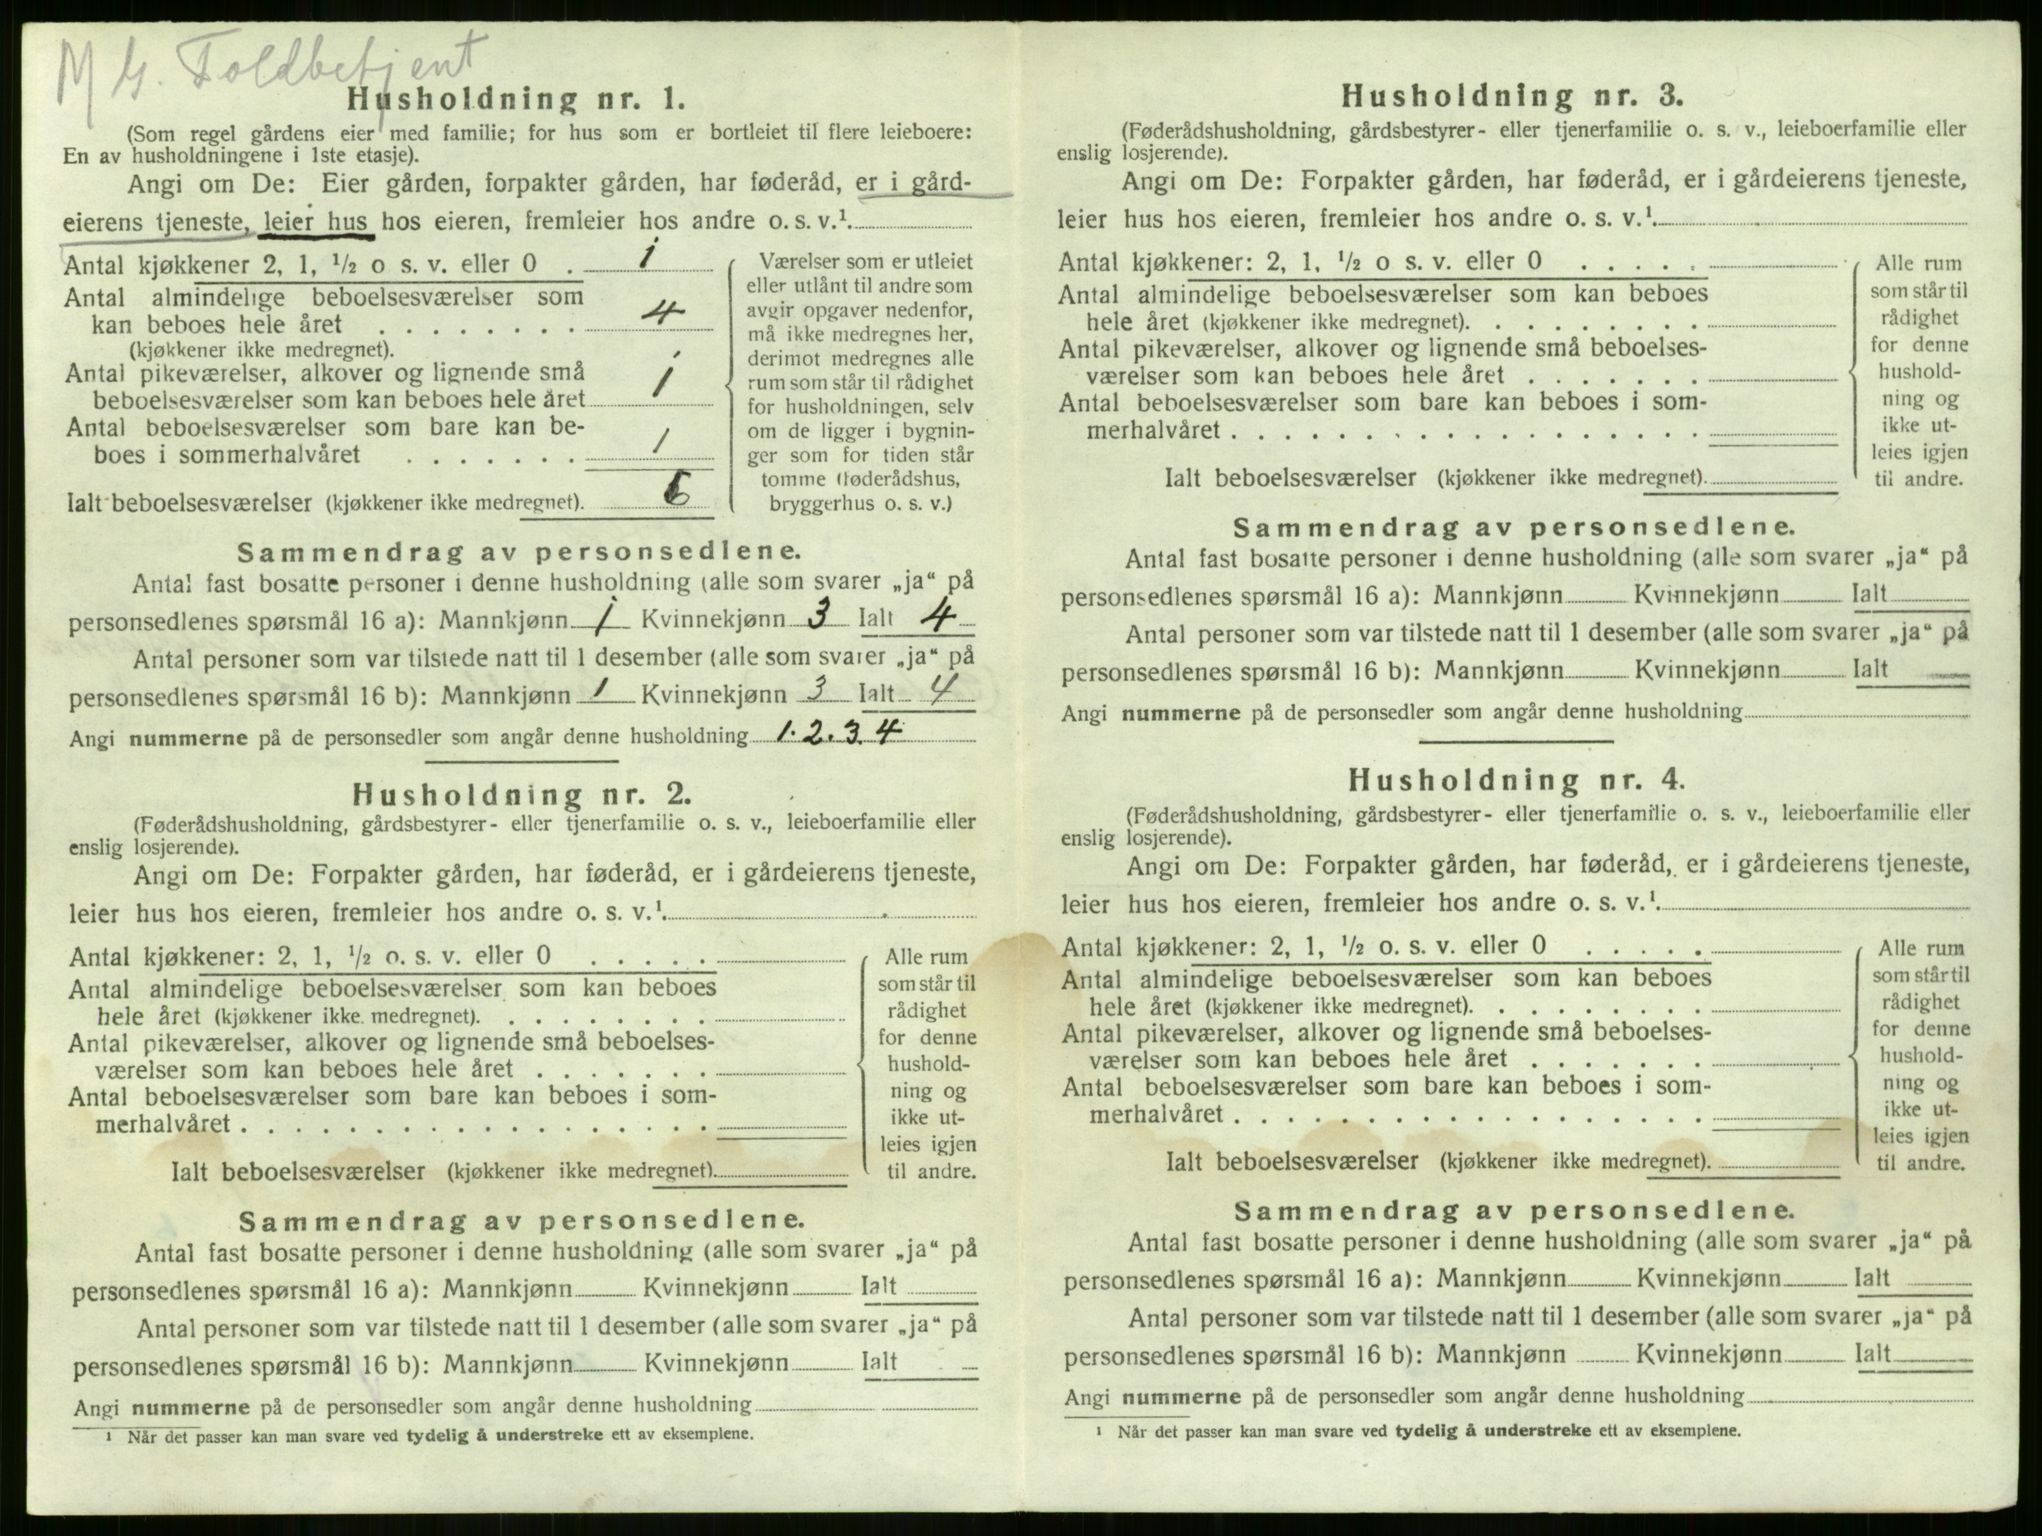 M G. Toldbetjent
Husholdning nr. 1.
(Som regel gårdens eier med familie; for hus som er bortleiet til flere leieboere:
En av husholdningene i 1ste etasje).
Angi om De: Eier gården, forpakter gården, har føderåd, er i gård-
eierens tjeneste, leier hus hos eieren, fremleier hos andre o. s. v.¹.
Antal kjøkkener 2, 1, ½ o s. v. eller 0 . 1
Antal almindelige beboelsesværelser som
kan beboes hele året . . . . . . . . 4
(kjøkkener ikke medregnet).
Antal pikeværelser, alkover og lignende små
beboelsesværelser som kan beboes hele året 1
Antal beboelsesværelser som bare kan be-
boes i sommerhalvåret . . . . . . . 1
Ialt beboelsesværelser (kjøkkener ikke medregnet). 6
Værelser som er utleiet
eller utlånt til andre som
avgir opgaver nedenfor,
må ikke medregnes her,
derimot medregnes alle
rum som står til rådighet
for husholdningen, selv
om de ligger i bygnin-
ger som for tiden står
tomme (føderådshus,
bryggerhus o. s. v.)
Sammendrag av personsedlene.
Antal fast bosatte personer i denne husholdning (alle som svarer „ja“ på
personsedlenes spørsmål 16 a): Mannkjønn 1 Kvinnekjønn 3 Ialt 4
Antal personer som var tilstede natt til 1 desember (alle som svarer „ja“ på
personsedlenes spørsmål 16 b): Mannkjønn 1 Kvinnekjønn 3 Ialt 4
Angi nummerne på de personsedler som angår denne husholdning 1. 2. 3. 4
Husholdning nr. 2.
(Føderådshusholdning, gårdsbestyrer- eller tjenerfamilie o. s. v., leieboerfamilie eller
enslig losjerende).
Angi om De: Forpakter gården, har føderåd, er i gårdeierens tjeneste,
leier hus hos eieren, fremleier hos andre o. s. v.¹.
Antal kjøkkener: 2, 1, ½ o. s. v. eller 0 . . . . .
Antal almindelige beboelsesværelser som kan beboes
hele året (kjøkkener ikke medregnet). . . . . . . . .
Antal pikeværelser, alkover og lignende små beboelses-
værelser som kan beboes hele året . . . . . . .
Antal beboelsesværelser som bare kan beboes i som-
merhalvåret . . . . . . . . . . . . . . . . . .
Ialt beboelsesværelser (kjøkkener ikke medregnet).
Alle rum
som står til
rådighet
for denne
hushold-
ning og
ikke ut-
leies igjen
til andre.
Sammendrag av personsedlene.
Antal fast bosatte personer i denne husholdning (alle som svarer „ja“ på
personsedlenes spørsmål 16 a): Mannkjønn Kvinnekjønn Ialt
Antal personer som var tilstede natt til 1 desember (alle som svarer „ja“ på
personsedlenes spørsmål 16 b): Mannkjønn Kvinnekjønn Ialt
Angi nummerne på de personsedler som angår denne husholdning
¹ Når det passer kan man svare ved tydelig å understreke ett av eksemplene.
Husholdning nr. 3.
(Føderådshusholdning, gårdsbestyrer- eller tjenerfamilie o. s. v., leieboerfamilie eller
enslig losjerende).
Angi om De: Forpakter gården, har føderåd, er i gårdeierens tjeneste,
leier hus hos eieren, fremleier hos andre o. s. v.¹.
Antal kjøkkener: 2, 1, ½ o s. v. eller 0 . . . . .
Antal almindelige beboelsesværelser som kan beboes
hele året (kjøkkener ikke medregnet). . . . . . . . .
Antal pikeværelser, alkover og lignende små beboelses-
værelser som kan beboes hele året . . . . . . .
Antal beboelsesværelser som bare kan beboes i som-
merhalvåret . . . . . . . . . . . . . . . . . .
Ialt beboelsesværelser (kjøkkener ikke medregnet).
Alle rum
som står til
rådighet
for denne
hushold-
ning og
ikke ut-
leies igjen
til andre.
Sammendrag av personsedlene.
Antal fast bosatte personer i denne husholdning (alle som svarer „ja“ på
personsedlenes spørsmål 16 a): Mannkjønn Kvinnekjønn Ialt
Antal personer som var tilstede natt til 1 desember (alle som svarer „ja“ på
personsedlenes spørsmål 16 b): Mannkjønn Kvinnekjønn Ialt
Angi nummerne på de personsedler som angår denne husholdning
Husholdning nr. 4.
(Føderådshusholdning, gårdsbestyrer- eller tjenerfamilie o. s. v., leieboerfamilie eller
enslig losjerende).
Angi om De: Forpakter gården, har føderåd, er i gårdeierens tjeneste,
leier hus hos eieren, fremleier hos andre o. s. v.¹.
Antal kjøkkener: 2, 1, ½ o. s. v. eller 0 . . . . .
Antal almindelige beboelsesværelser som kan beboes
hele året (kjøkkener ikke medregnet). . . . . . . . .
Antal pikeværelser, alkover og lignende små beboelses-
værelser som kan beboes hele året . . . . . . .
Antal beboelsesværelser som bare kan beboes i som-
merhalvåret . . . . . . . . . . . . . . . . . .
Ialt beboelsesværelser (kjøkkener ikke medregnet).
Alle rum
som står til
rådighet
for denne
hushold-
ning og
ikke ut-
leies igjen
til andre.
Sammendrag av personsedlene.
Antal fast bosatte personer i denne husholdning (alle som svarer „ja“ på
personsedlenes spørsmål 16 a): Mannkjønn Kvinnekjønn Ialt
Antal personer som var tilstede natt til 1 desember (alle som svarer „ja“ på
personsedlenes spørsmål 16 b): Mannkjønn Kvinnekjønn Ialt
Angi nummerne på de personsedler som angår denne husholdning
¹ Når det passer kan man svare ved tydelig å understreke ett av eksemplene.